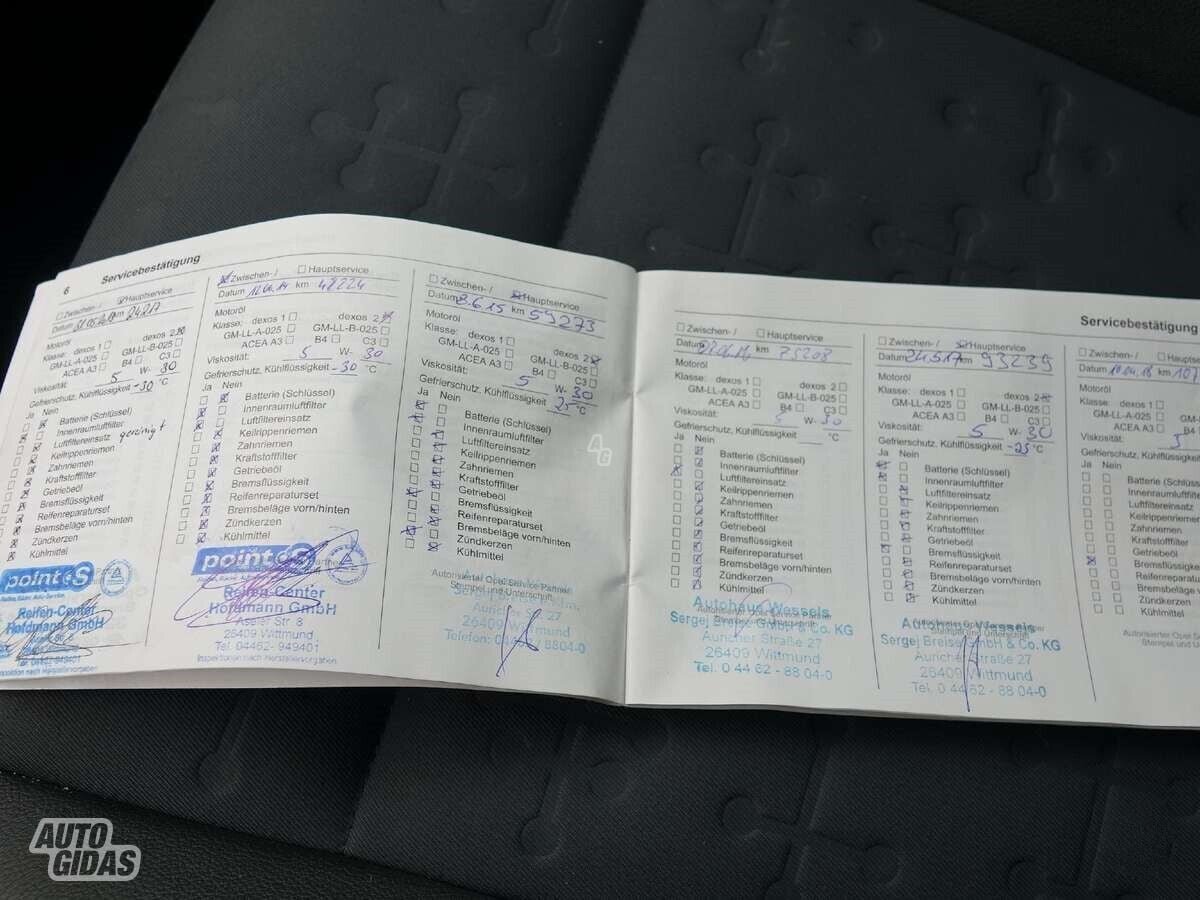 6 Servicebestätigung
Zwischen-/ Hauptservice
Datum km 24217
Motoröl
Klasse: dexos 1 dexos 2
GM-LL-A-025 GM-LL-B-025
ACEA A3 B4 C3
Viskosität: 5 W- 30
Gefrierschutz, Kühlflüssigkeit -30 °C
Ja Nein
Batterie (Schlüssel)
Innenraumluftfilter
Luftfiltereinsatz gereinigt
Keilrippenriemen
Zahnriemen
Kraftstofffilter
Getriebeöl
Bremsflüssigkeit
Reifenreparaturset
Bremsbeläge vorn/hinten
Zündkerzen
Kühlmittel
point S
Reifen-Center
Hordmann GmbH
Zwischen-/ Hauptservice
Datum km 48224
Motoröl
Klasse: dexos 1 dexos 2
GM-LL-A-025 GM-LL-B-025
ACEA A3 B4 C3
Viskosität: 5 W- 30
Gefrierschutz, Kühlflüssigkeit -30 °C
Ja Nein
Batterie (Schlüssel)
Innenraumluftfilter
Luftfiltereinsatz
Keilrippenriemen
Zahnriemen
Kraftstofffilter
Getriebeöl
Bremsflüssigkeit
Reifenreparaturset
Bremsbeläge vorn/hinten
Zündkerzen
Kühlmittel
point S
Reifen-Center
Hordmann GmbH
Str. 8
26409 Wittmund
Tel. 04462-949401
Inspektion nach Herstellervorgaben
Zwischen-/ Hauptservice
Datum 8.6.15 km 59273
Motoröl
Klasse: dexos 1 dexos 2
GM-LL-A-025 GM-LL-B-025
ACEA A3 B4 C3
Viskosität: 5 W- 30
Gefrierschutz, Kühlflüssigkeit 25 °C
Ja Nein
Batterie (Schlüssel)
Innenraumluftfilter
Luftfiltereinsatz
Keilrippenriemen
Zahnriemen
Kraftstofffilter
Getriebeöl
Bremsflüssigkeit
Reifenreparaturset
Bremsbeläge vorn/hinten
Zündkerzen
Kühlmittel
Autorisierter Opel Service Partner
Stempel und Unterschrift
26409 Wittmund
Servicebestätigung
Zwischen-/ Hauptservice
Datum km 75208
Motoröl
Klasse: dexos 1 dexos 2
GM-LL-A-025 GM-LL-B-025
ACEA A3 B4 C3
Viskosität: 5 W- 30
Gefrierschutz, Kühlflüssigkeit °C
Ja Nein
Batterie (Schlüssel)
Innenraumluftfilter
Luftfiltereinsatz
Keilrippenriemen
Zahnriemen
Kraftstofffilter
Getriebeöl
Bremsflüssigkeit
Reifenreparaturset
Bremsbeläge vorn/hinten
Zündkerzen
Kühlmittel
Autohaus Wessels
Sergej Breise GmbH & Co. KG
Auricher Straße 27
26409 Wittmund
Tel. 0 44 62 - 88 04-0
Zwischen-/ Hauptservice
Datum 24.5.17 km 93239
Motoröl
Klasse: dexos 1 dexos 2
GM-LL-A-025 GM-LL-B-025
ACEA A3 B4 C3
Viskosität: 5 W- 30
Gefrierschutz, Kühlflüssigkeit -25 °C
Ja Nein
Batterie (Schlüssel)
Innenraumluftfilter
Luftfiltereinsatz
Keilrippenriemen
Zahnriemen
Kraftstofffilter
Getriebeöl
Bremsflüssigkeit
Reifenreparaturset
Bremsbeläge vorn/hinten
Zündkerzen
Kühlmittel
Autohaus Wessels
Sergej Breise GmbH & Co. KG
Auricher Straße 27
26409 Wittmund
Tel. 0 44 62 - 88 04-0
Zwischen-/
Datum 10.04.18 km 107
Motoröl
Klasse: dexos 1
GM-LL-A-025
ACEA A3
Viskosität: 5
Gefrierschutz, Kühlflüssigkeit
Ja Nein
Innenraumluftfilter
Luftfiltereinsatz
Keilrippenriemen
Zahnriemen
Kraftstofffilter
Getriebeöl
Bremsflüssigkeit
Bremsbeläge
Zündkerzen
Kühlmittel
AUTO
GIDAS